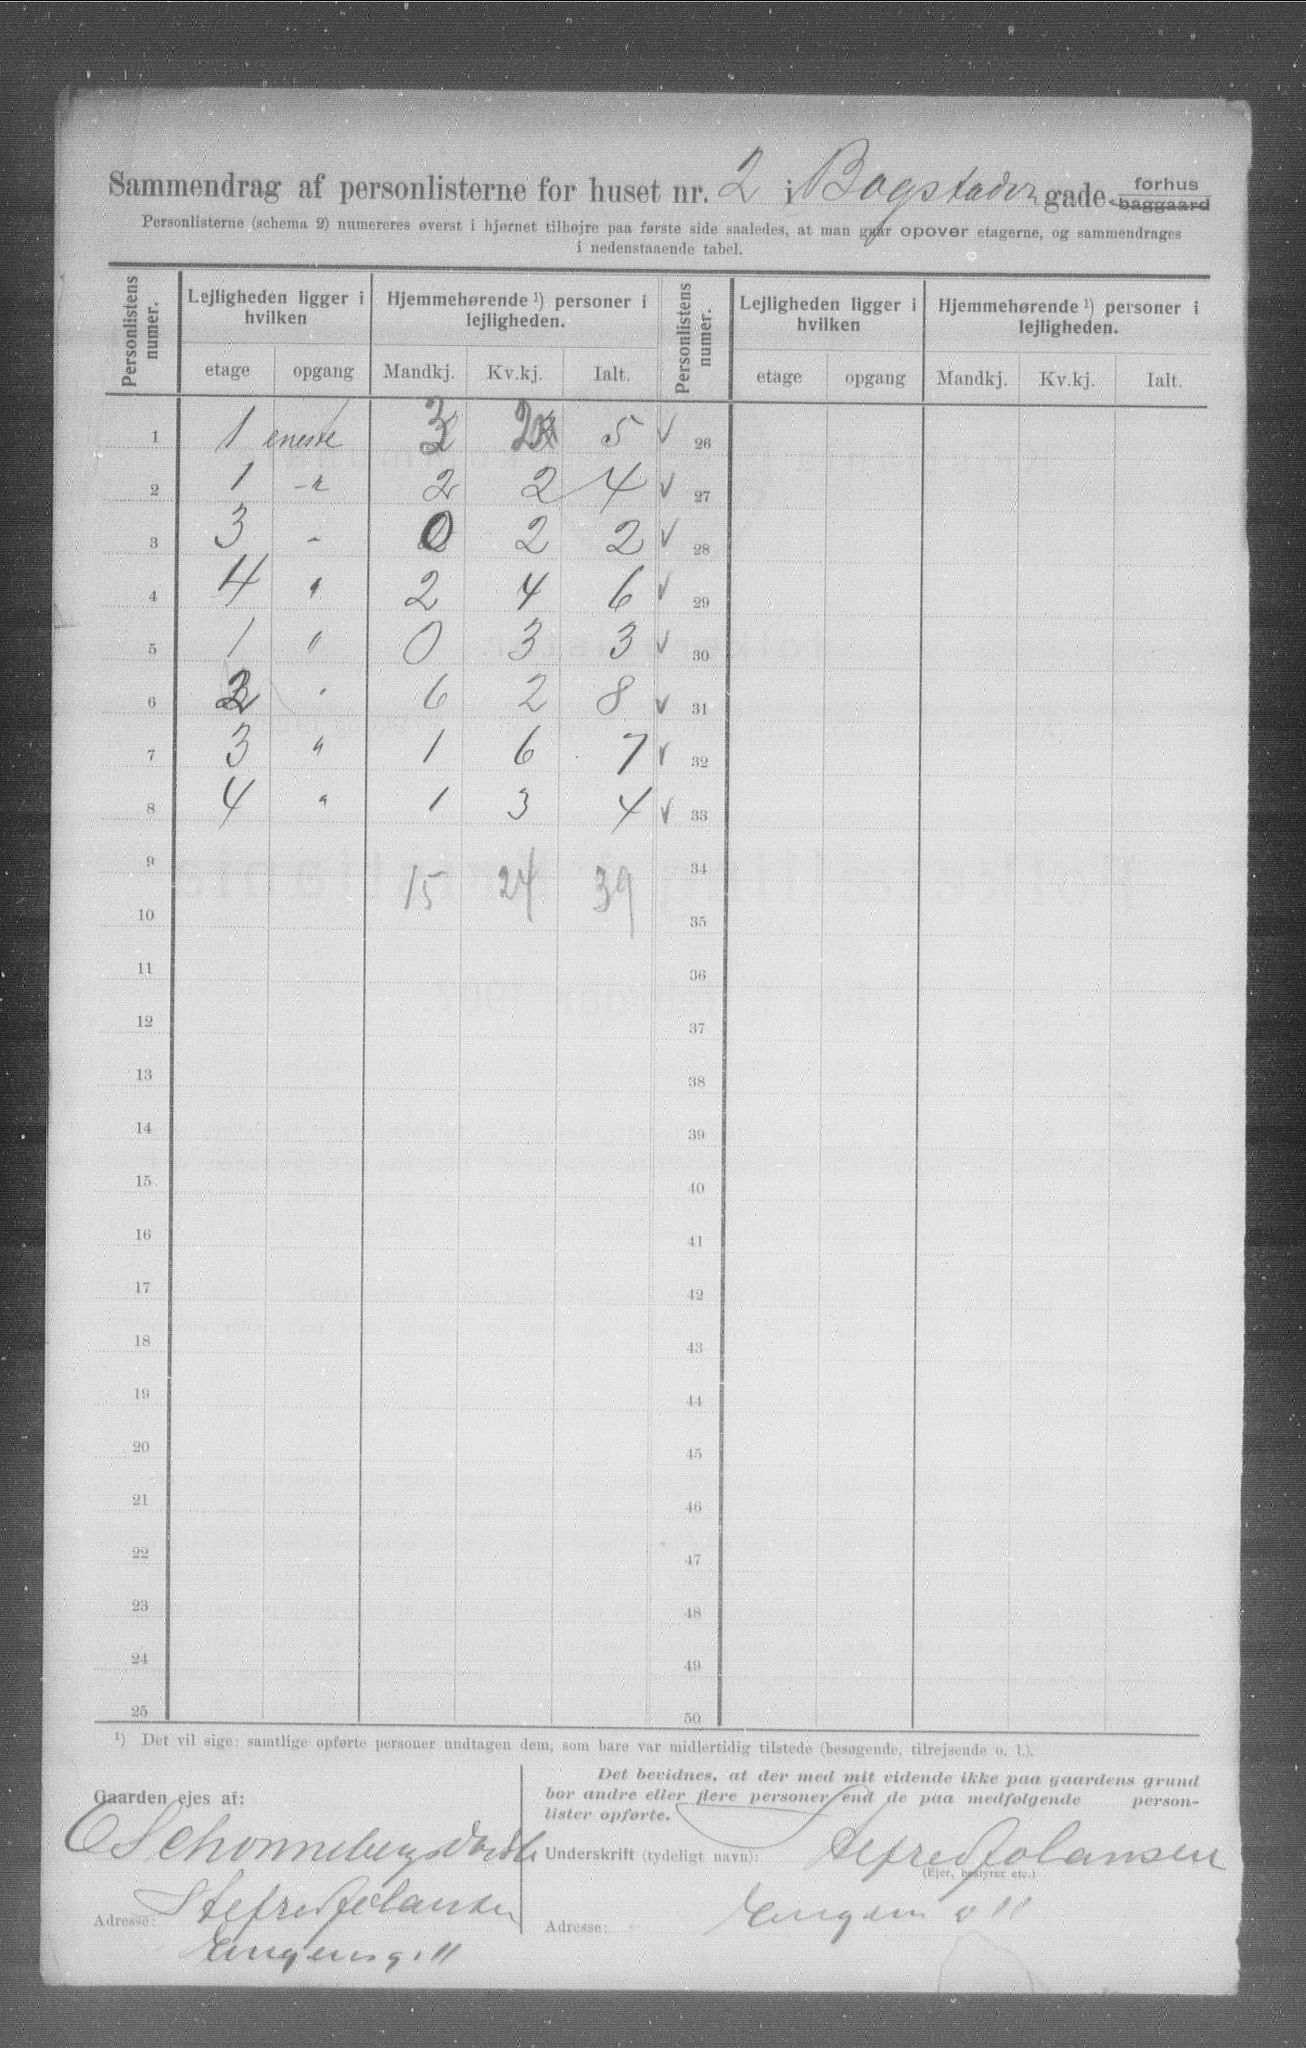 Sammendrag af personlisterne for huset nr. 2 i Bogstadvn gade forhus baggaard
Personlisterne (schema 2) numereres øverst i hjørnet tilhøjre paa første side saaledes, at man gaar opover etagerne, og sammendrages
i nedenstaaende tabel.
Personlistens numer. Lejligheden ligger i hvilken Hjemmehørende ¹) personer i lejligheden. Personlistens numer. Lejligheden ligger i hvilken Hjemmehørende ¹) personer i lejligheden.
etage opgang Mandkj. Kv.kj. Ialt. etage opgang Mandkj. Kv.kj. Ialt.
1 1 eneste 3 2 5 ✓ 26
2 1 -"- 2 2 4 ✓ 27
3 3 - 0 2 2 ✓ 28
4 4 " 2 4 6 ✓ 29
5 1 " 0 3 3 ✓ 30
6 2 " 6 2 8 ✓ 31
7 3 " 1 6 7 ✓ 32
8 4 " 1 3 4 ✓ 33
9 15 24 39 34
10 35
11 36
12 37
13 38
14 39
15 40
16 41
17 42
18 43
19 44
20 45
21 46
22 47
23 48
24 49
25 50
¹) Det vil sige: samtlige opførte personer undtagen dem, som bare var midlertidig tilstede (besøgende, tilrejsende o. l.).
Gaarden ejes af:
Adresse:
Det bevidnes, at der med mit vidende ikke paa gaardens grund
bor andre eller flere personer end de paa medfølgende person-
lister opførte.
Underskrift (tydeligt navn):
(Ejer, bestyrer etc.)
Adresse: